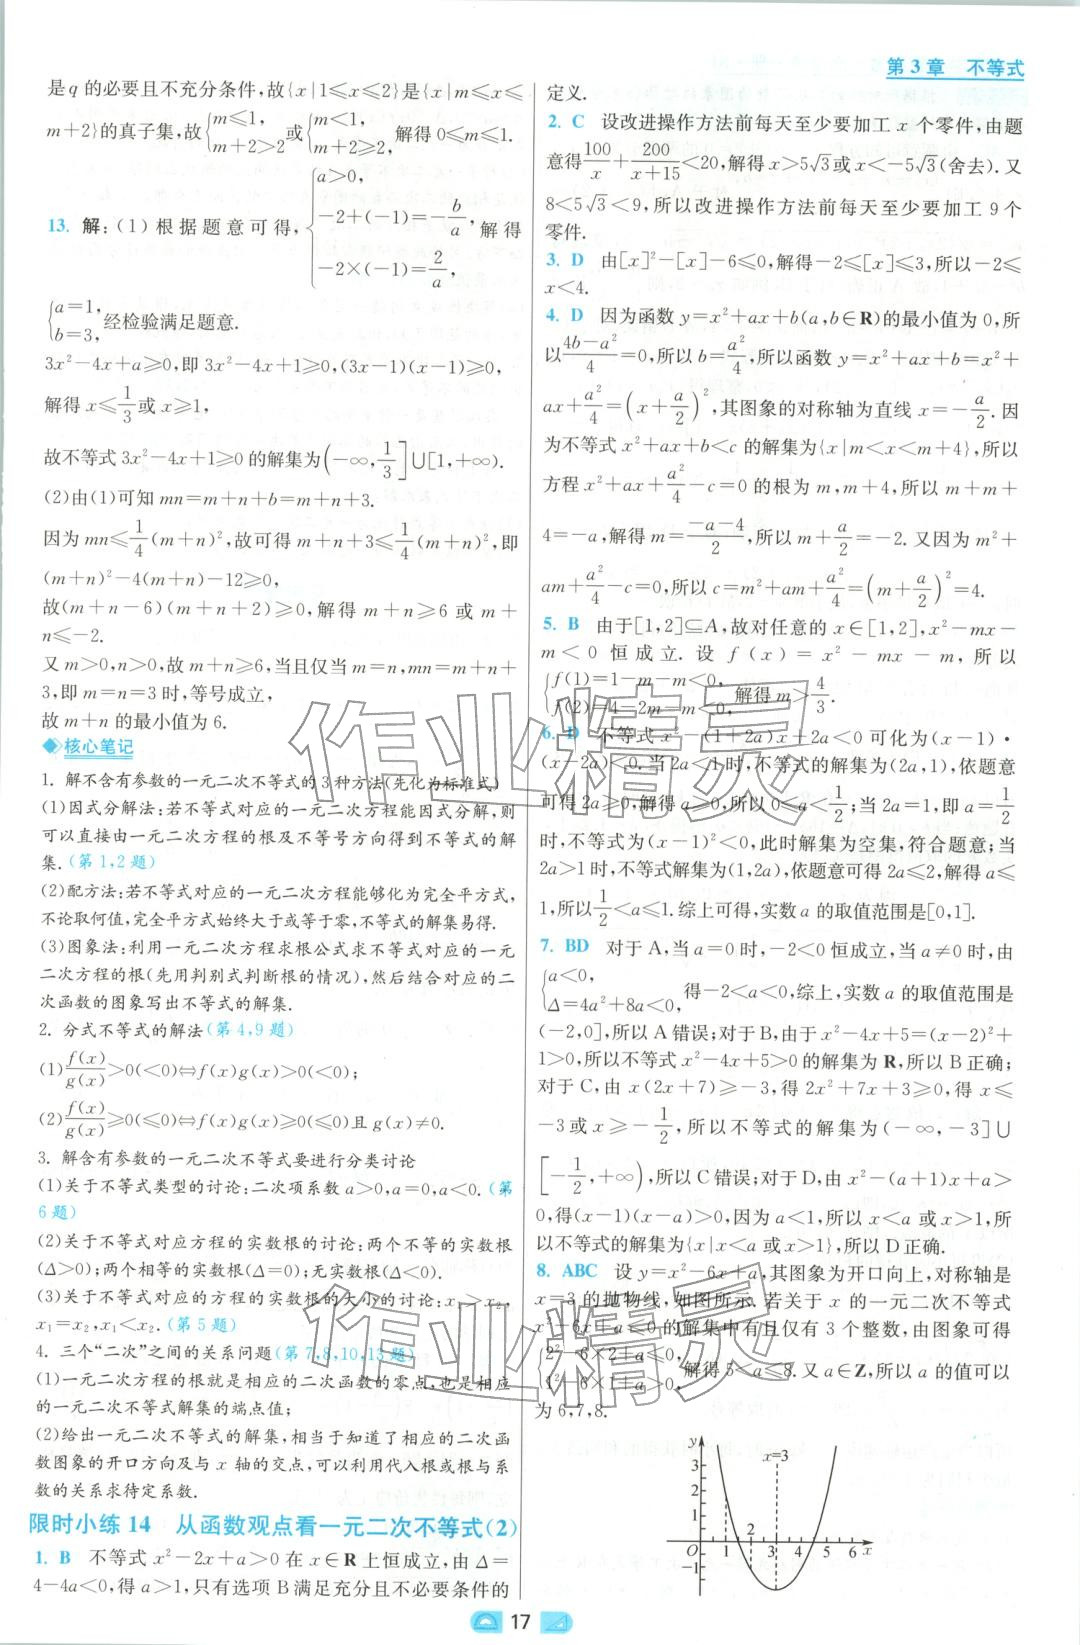 第3章 不等式
是q的必要且不充分条件,故{x|1⩽x⩽2}是{x|m⩽x⩽
m+2}的真子集,故{m⩽1, m+2>2 或{m<1, m+2⩾2, 解得0⩽m⩽1.
13. 解:(1)根据题意可得,{a>0, -2+(-1)=-b/a, -2×(-1)=2/a, 解得
{a=1, b=3, 经检验满足题意.
3x²-4x+a⩾0,即3x²-4x+1⩾0,(3x-1)(x-1)⩾0,
解得x⩽1/3或x⩾1,
故不等式3x²-4x+1⩾0的解集为(-∞,1/3]∪[1,+∞).
(2)由(1)可知mn=m+n+b=m+n+3.
因为mn⩽1/4(m+n)²,故可得m+n+3⩽1/4(m+n)²,即
(m+n)²-4(m+n)-12⩾0,
故(m+n-6)(m+n+2)⩾0,解得m+n⩾6或m+
n⩽-2.
又m>0,n>0,故m+n⩾6,当且仅当m=n,mn=m+n+
3,即m=n=3时,等号成立,
故m+n的最小值为6.
核心笔记
1. 解不含有参数的一元二次不等式的3种方法(先化为标准式)
(1)因式分解法:若不等式对应的一元二次方程能因式分解,则
可以直接由一元二次方程的根及不等号方向得到不等式的解
集.(第1,2题)
(2)配方法:若不等式对应的一元二次方程能够化为完全平方式,
不论取何值,完全平方式始终大于或等于零,不等式的解集易得.
(3)图象法:利用一元二次方程求根公式求不等式对应的一元
二次方程的根(先用判别式判断根的情况),然后结合对应的二
次函数的图象写出不等式的解集.
2. 分式不等式的解法(第4,9题)
(1)f(x)/g(x)>0(<0)⇔f(x)g(x)>0(<0);
(2)f(x)/g(x)⩾0(⩽0)⇔f(x)g(x)⩾0(⩽0)且g(x)≠0.
3. 解含有参数的一元二次不等式要进行分类讨论
(1)关于不等式类型的讨论:二次项系数a>0,a=0,a<0.(第
6题)
(2)关于不等式对应方程的实数根的讨论:两个不等的实数根
(Δ>0);两个相等的实数根(Δ=0);无实数根(Δ<0).
(3)关于不等式对应的方程的实数根的大小的讨论:x₁>x₂,
x₁=x₂,x₁<x₂.(第5题)
4. 三个“二次”之间的关系问题(第7,8,10,13题)
(1)一元二次方程的根就是相应的二次函数的零点,也是相应
的一元二次不等式解集的端点值;
(2)给出一元二次不等式的解集,相当于知道了相应的二次函
数图象的开口方向及与x轴的交点,可以利用代入根或根与系
数的关系求待定系数.
限时小练14 从函数观点看一元二次不等式(2)
1. B 不等式x²-2x+a>0在x∈R上恒成立,由Δ=
4-4a<0,得a>1,只有选项B满足充分且不必要条件的
定义.
2. C 设改进操作方法前每天至少要加工x个零件,由题
意得100/x+200/(x+15)<20,解得x>5√3或x<-5√3(舍去).又
8<5√3<9,所以改进操作方法前每天至少要加工9个
零件.
3. D 由[x]²-[x]-6⩽0,解得-2⩽[x]⩽3,所以-2⩽
x<4.
4. D 因为函数y=x²+ax+b(a,b∈R)的最小值为0,所
以(4b-a²)/4=0,所以b=a²/4,所以函数y=x²+ax+b=x²+
ax+a²/4=(x+a/2)²,其图象的对称轴为直线x=-a/2.因
为不等式x²+ax+b<c的解集为{x|m<x<m+4},所以
方程x²+ax+a²/4-c=0的根为m,m+4,所以m+m+
4=-a,解得m=(-a-4)/2,所以m+a/2=-2.又因为m²+
am+a²/4-c=0,所以c=m²+am+a²/4=(m+a/2)²=4.
5. B 由于[1,2]⊆A,故对任意的x∈[1,2],x²-mx-
m<0恒成立.设f(x)=x²-mx-m,所以
{f(1)=1-m-m<0, f(2)=4-2m-m<0, 解得m>4/3.
6. D 不等式x²-(1+2a)x+2a<0可化为(x-1)·
(x-2a)<0.当2a<1时,不等式的解集为(2a,1),依题意
可得2a⩾0,解得a⩾0,所以0⩽a<1/2;当2a=1,即a=1/2
时,不等式为(x-1)²<0,此时解集为空集,符合题意;当
2a>1时,不等式解集为(1,2a),依题意可得2a⩽2,解得a⩽
1,所以1/2<a⩽1.综上可得,实数a的取值范围是[0,1].
7. BD 对于A,当a=0时,-2<0恒成立,当a≠0时,由
{a<0, Δ=4a²+8a<0, 得-2<a<0,综上,实数a的取值范围是
(-2,0],所以A错误;对于B,由于x²-4x+5=(x-2)²+
1>0,所以不等式x²-4x+5>0的解集为R,所以B正确;
对于C,由x(2x+7)⩾-3,得2x²+7x+3⩾0,得x⩽
-3或x⩾-1/2,所以不等式的解集为(-∞,-3]∪
[-1/2,+∞),所以C错误;对于D,由x²-(a+1)x+a>
0,得(x-1)(x-a)>0,因为a<1,所以x<a或x>1,所
以不等式的解集为{x|x<a或x>1},所以D正确.
8. ABC 设y=x²-6x+a,其图象为开口向上,对称轴是
x=3的抛物线,如图所示.若关于x的一元二次不等式
x²-6x+a⩽0的解集中有且仅有3个整数,由图象可得
{2²-6×2+a⩽0, 1²-6×1+a>0, 解得5<a⩽8.又a∈Z,所以a的值可以
为6,7,8.
y
x=3
3
2
1
-1
O 1 2 3 4 5 6 x
作业精灵
作业精灵
17